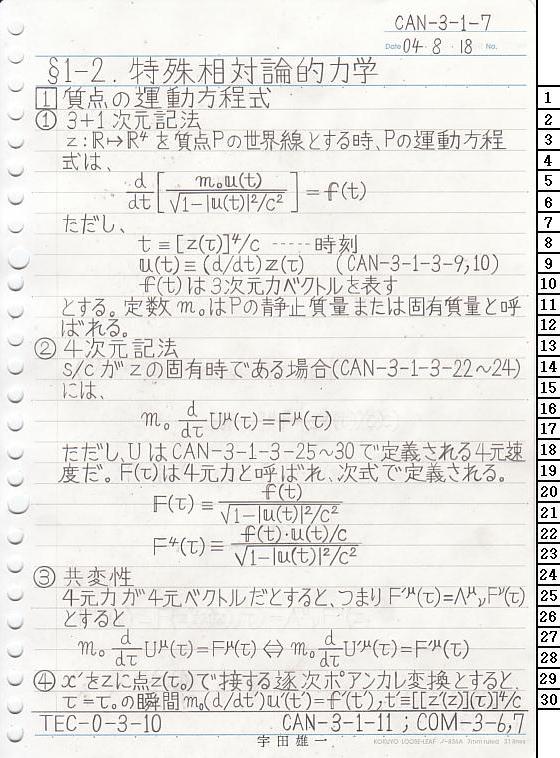 CAN-3-1-7
Date 04・8・18 No.
§1-2. 特殊相対論的力学
1 質点の運動方程式
① 3+1次元記法
z:R↦R⁴を質点Pの世界線とする時、Pの運動方程
式は、
d/dt [m₀u(t)/√1-|u(t)|²/c²] = f(t)
ただし、
t≡[z(τ)]⁴/c ----- 時刻
u(t)≡(d/dt)z(τ) (CAN-3-1-3-9,10)
f(t)は3次元力ベクトルを表す
とする。定数m₀はPの静止質量または固有質量と呼
ばれる。
② 4次元記法
s/cがzの固有時である場合(CAN-3-1-3-22〜24)
には、
m₀ d/dτ U^μ(τ)=F^μ(τ)
ただし、UはCAN-3-1-3-25〜30で定義される4元速
度だ。F(τ)は4元力と呼ばれ、次式で定義される。
F(τ)≡ f(t)/√1-|u(t)|²/c²
F⁴(τ)≡ f(t)・u(t)/c/√1-|u(t)|²/c²
③ 共変性
4元力が4元ベクトルだとすると、つまりF'^μ(τ)=Λ^μ_νF^ν(τ)
とすると
m₀ d/dτ U^μ(τ)=F^μ(τ) ⇔ m₀ d/dτ U'^μ(τ)=F'^μ(τ)
④ x'をzに点z(τ₀)で接する逐次ポアンカレ変換とすると
τ=τ₀の瞬間m₀(d/dt')u'(t')=f'(t'), t'≡[[z'(z)](τ)]⁴/c
TEC-0-3-10 CAN-3-1-11 ; COM-3-6,7
宇田雄一
KOKUYO LOOSE-LEAF ノ-836A 7mm ruled 31 lines
1
2
3
4
5
6
7
8
9
10
11
12
13
14
15
16
17
18
19
20
21
22
23
24
25
26
27
28
29
30